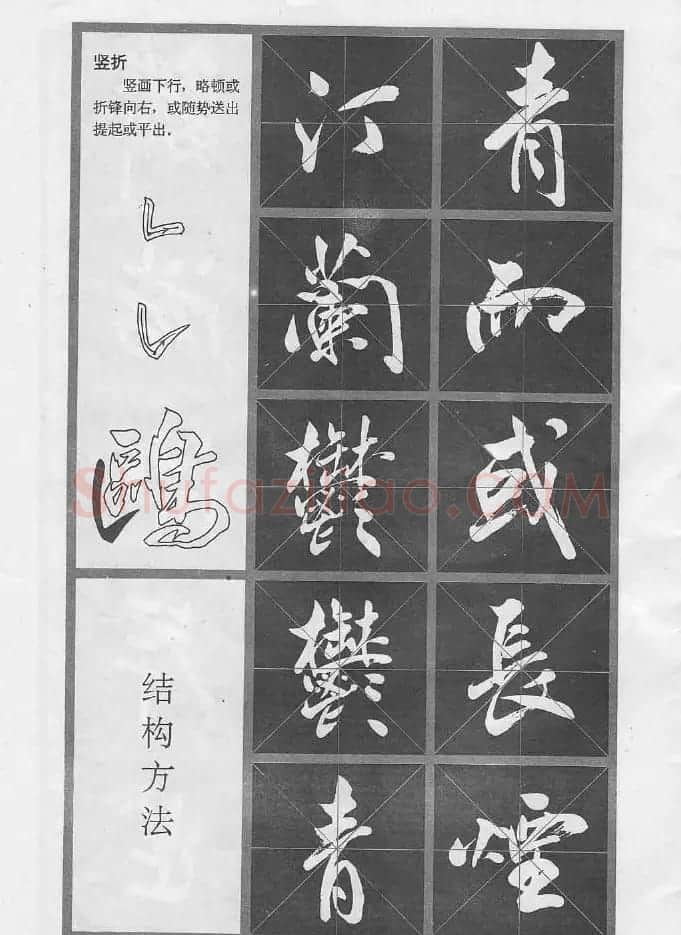 竖折
竖画下行，略顿或
折锋向右，或随势送出
提起或平出．
鷗
结构方法
汀蘭鬱鬱青
青而或長煙
Shufaziliao.COM